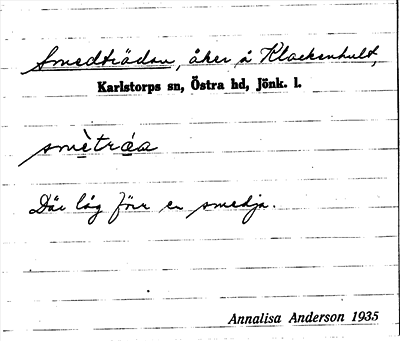 Smedträdan, åker å Klackenhult,
Karlstorps sn, Östra hd, Jönk. l.
smètráa
Där låg förr en smedja.
Annalisa Anderson 1935